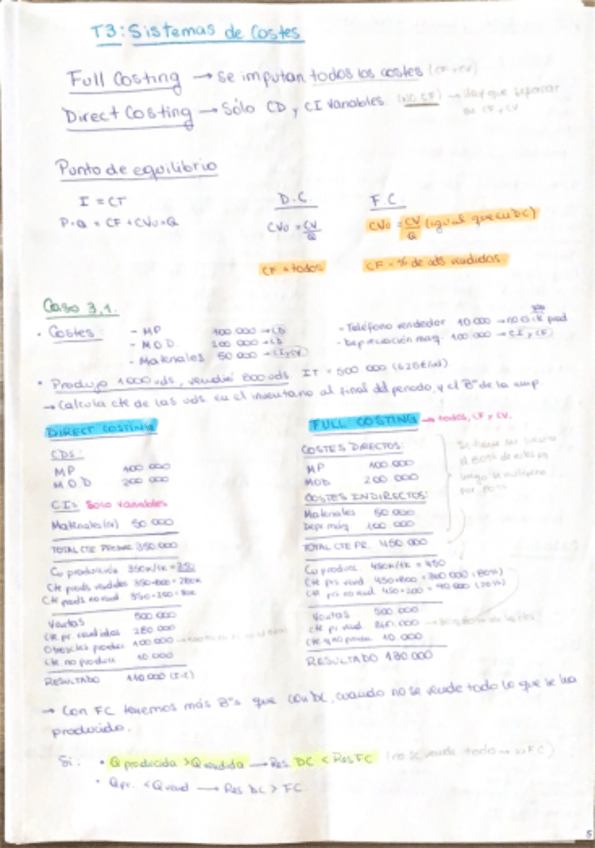 T3: Sistemas de Costes
Full Costing → Se imputan todos los costes (CF+CV)
Direct Costing → Sólo CD y CI variables (NO CF) → Hay que separar
en CF y CV
Punto de equilibrio
I = CT
P·Q = CF + CVu·Q
D.C
CVu = CV/Q
CF = todos
F.C.
CVu = CV/Q (igual que en DC)
CF = % de uds vendidas
Caso 3.1.
· Costes: - MP 400 000 → CD
- M.O.D. 200 000 → CD
- Materiales 50 000 → CI, CV
- Teléfono vendedor 10 000 → no prod
- Depreciación maq. 100 000 → CI, CF
· Produjo 1000 uds, vendió 800 uds IT = 500 000 (625€/ud)
→ Calcula cte de las uds. en el inventario al final del periodo, y el Bº de la emp.
DIRECT COSTING
CDs:
MP 100 000
MOD 200 000
CIs Solo variables
Materiales 50 000
TOTAL CTE 350 000
Cu producción 350k/1k = 350
Cte prods vendidos 350·800 = 280k
Cte prods no vend 350·200 = 70k
Ventas 500 000
Cte pr. vendidos 280 000
100 000
Cte no produc 10 000
RESULTADO 110 000
FULL COSTING → todos, CF y CV.
COSTES DIRECTOS:
MP 100 000
MOD 200 000
COSTES INDIRECTOS:
Materiales 50 000
Depr maq 100 000
TOTAL CTE PR. 450 000
Cu produc 450k/1k = 450
Cte pr. vend 450·800 = 360 000 (80%)
Cte pr. no vend 450·200 = 90 000 (20%)
Ventas 500 000
Cte pr. vend 360 000
10 000
RESULTADO 130 000
→ Con FC tenemos más Bºs que con DC, cuando no se vende todo lo que se ha
producido.
Si: · Q producida > Q vendida → Res. DC < Res FC (no se vende todo → FC)
· Q pr. < Q vend → Res DC > FC
5